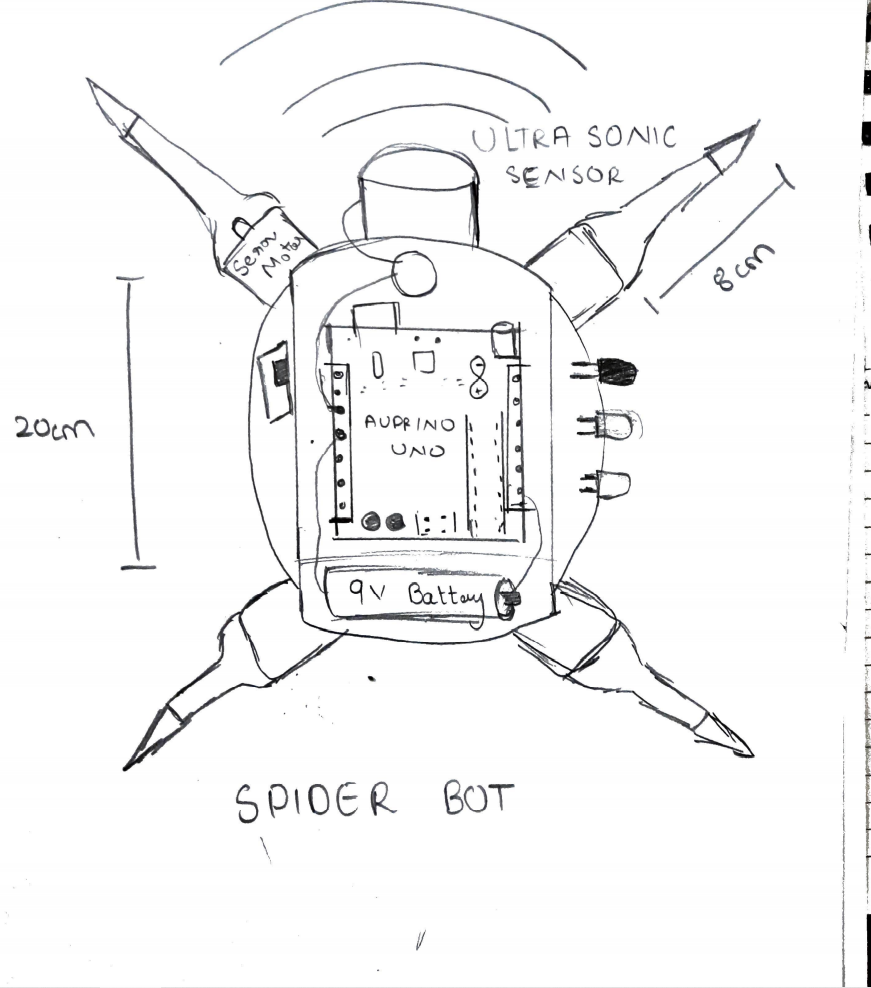 ULTRA SONIC
SENSOR
Motor
8cm
20cm
AUPRINO
UNO
9V Battery
SPIDER BOT